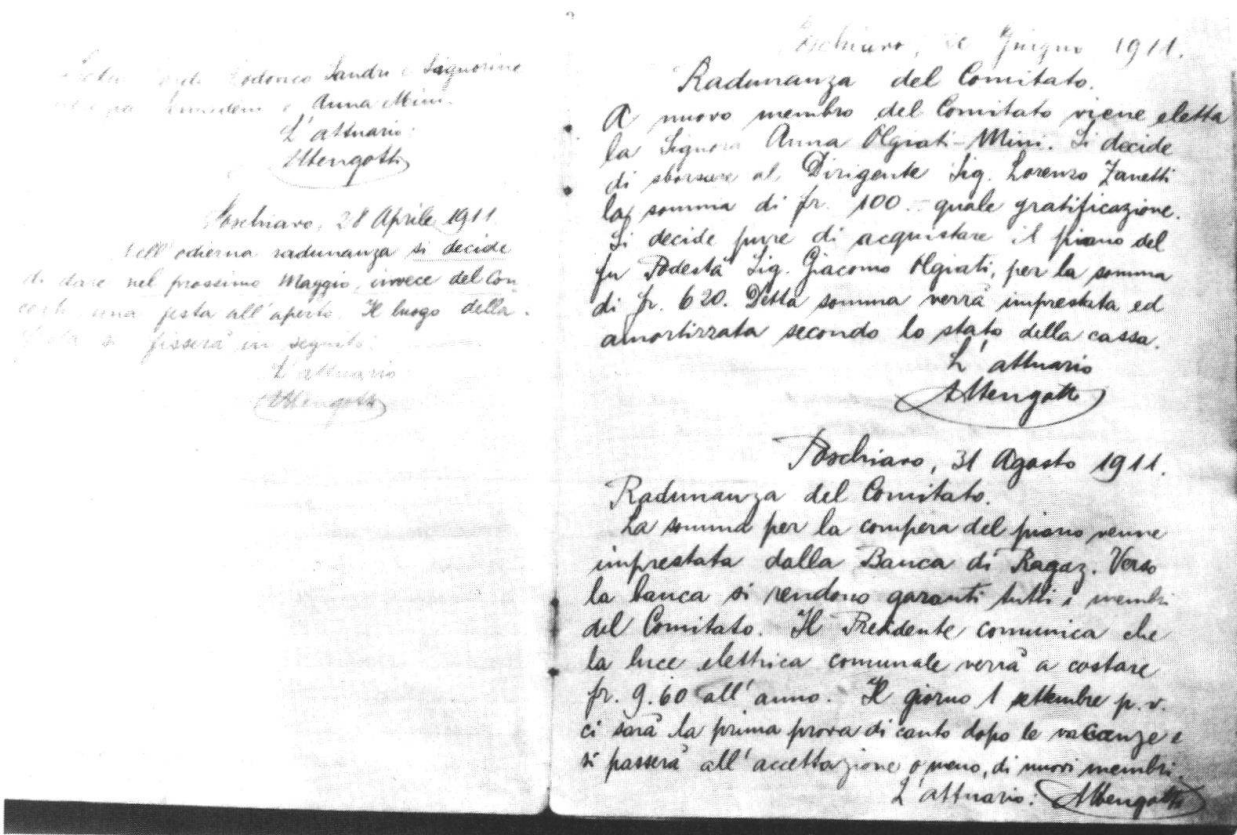 Lodovico Sandri e Signorine
e Anna Mini.
L'attuario:
AMengotti
Poschiavo, 28 Aprile 1911
Nell'odierna radunanza si decide
di dare nel prossimo Maggio, invece del Con
certo una festa all'aperto. Il luogo della
festa si fisserà in seguito.
L'attuario
AMengotti
Poschiavo, Giugno 1911.
Radunanza del Comitato.
A nuovo membro del Comitato viene eletta
la Signora Anna Olgiati-Mini. Si decide
di sborsare al Dirigente Sig. Lorenzo Zanetti
la somma di fr. 100.- quale gratificazione.
Si decide pure di acquistare il piano del
fu Podestà Sig. Giacomo Olgiati, per la somma
di fr. 620. Detta somma verrà imprestata ed
amortizzata secondo lo stato della cassa.
L'attuario
AMengotti
Poschiavo, 31 Agosto 1911.
Radunanza del Comitato.
La somma per la compera del piano venne
imprestata dalla Banca di Ragaz. Verso
la banca si rendono garanti tutti i membri
del Comitato. Il Presidente comunica che
la luce elettrica comunale verrà a costare
fr. 9.60 all'anno. Il giorno 1 settembre p.v.
ci sarà la prima prova di canto dopo le vacanze e
si passerà all'accettazione o meno, di nuovi membri.
L'attuario: AMengotti